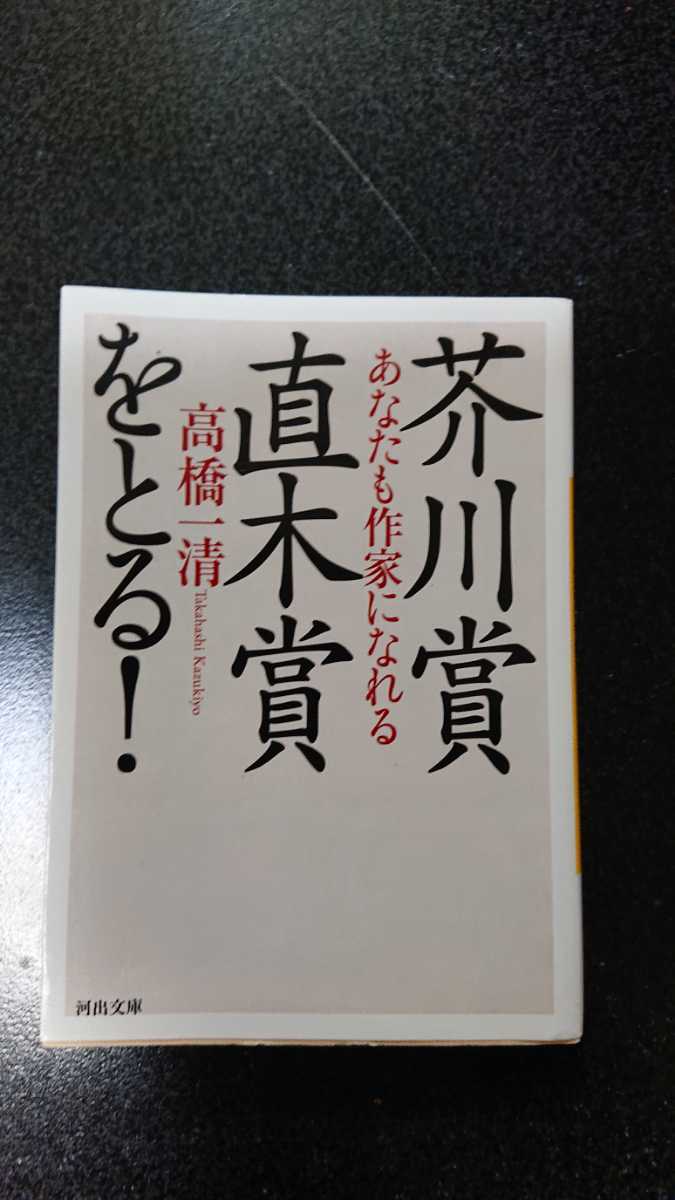 芥川賞
あなたも作家になれる
直木賞
高橋一清
Takahashi Kazukiyo
をとる!
河出文庫